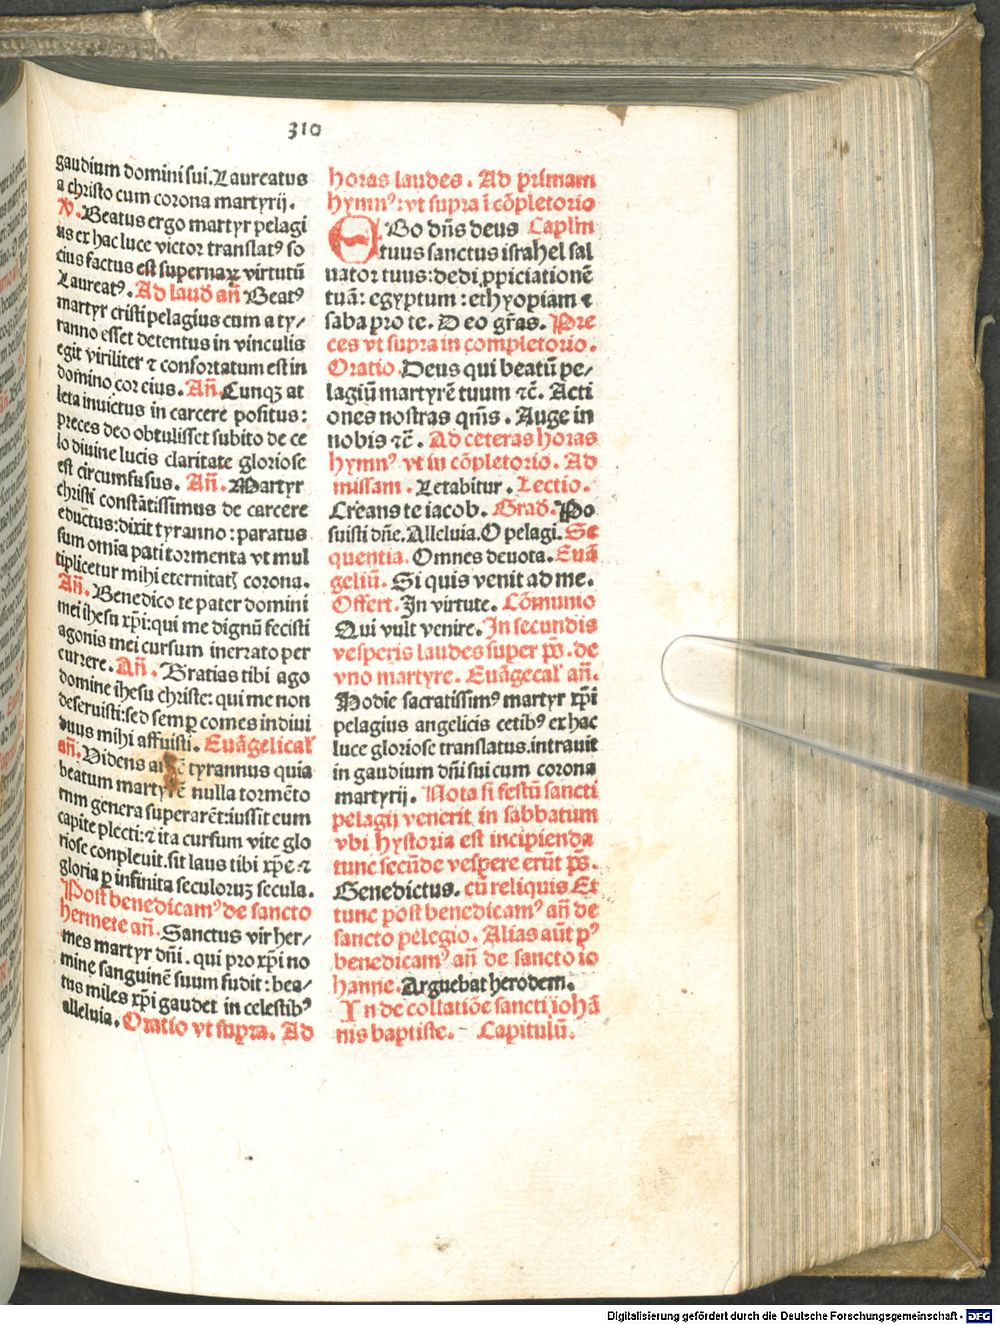 310
gaudium domini sui. Laureatus
a christo cum corona martyrij.
℣. Beatus ergo martyr pelagi
us ex hac luce victor translatꝰ so
cius factus est supernaꝝ virtutū
Laureatꝰ. Ad laud añ Beatꝰ
martyr cristi pelagius cum a ty/
ranno esset detentus in vinculis
egit viriliter ⁊ confortatum est in
domino cor eius. Añ. Cunqꝫ at
leta inuictus in carcere positus:
preces deo obtulisset subito de ce
lo diuine lucis claritate gloriose
est circumfusus. Añ. Martyr
christi constātissimus de carcere
eductus: dixit tyranno: paratus
sum omīa pati tormenta vt mul
tiplicetur mihi eternitatꝭ corona.
Añ. Benedico te pater domini
mei ihesu xp̄i: qui me dignū fecisti
agonis mei cursum inerrato per
currere. Añ. Gratias tibi ago
domine ihesu christe: qui me non
deseruisti: sed semꝑ comes indiui
duus mihi affuisti. Euāgelicał
añ. Videns tyrannus quia
beatum martyrē nulla tormēto
rum genera superarēt: iussit eum
capite plecti: ⁊ ita cursum vite glo
riose conpleuit. sit laus tibi xp̄e ⁊
gloria ꝑ infinita seculoruꝫ secula.
Post benedicamꝰ de sancto
hermete añ. Sanctus vir her/
mes martyr dñi. qui pro xp̄i no
mine sanguinē suum fudit: bea/
tus miles xp̄i gaudet in celestibꝰ
alleluia. Oratio vt supra. Ad
horas laudes. Ad primam
hymnꝰ: vt supra ī cōpletorio
EGo dñs deus Caplm
tuus sanctus israhel sal
uator tuus: dedi ꝓpiciationē
tuā: egyptum: ethyopiam ⁊
saba pro te. Deo gr̄as. Pre
ces vt supra in completorio.
Oratio. Deus qui beatū pe/
lagiū martyrē tuum ⁊c̄. Acti
ones nostras qm̄s. Auge in
nobis ⁊c̄. Ad ceteras horas
hymnꝰ vt in cōpletorio. Ad
missam. Letabitur. Lectio.
Creans te iacob. Grad. Po
suisti dñe. Alleluia. O pelagi. Se
quentia. Omnes deuota. Euā
geliū. Si quis venit ad me.
Offert. In virtute. Cōmunio
Qui vult venire. In secundis
vesperis laudes super p̄s. de
vno martyre. Euāgecał añ.
Hodie sacratissimꝰ martyr xp̄i
pelagius angelicis cetibꝰ ex hac
luce gloriose translatus. intrauit
in gaudium dñi sui cum corona
martyrij. Nota si festū sancti
pelagij venerit in sabbatum
vbi hystoria est incipienda
tunc secūde vespere erūt p̄s.
Benedictus. cū reliquis Et
tunc post benedicamꝰ añ de
sancto pelegio. Alias aūt pꝰ
benedicamꝰ añ de sancto io
hanne. Arguebat herodem.
In de collatiōe sancti iohā
nis baptiste. Capitulū.
Digitalisierung gefördert durch die Deutsche Forschungsgemeinschaft - DFG